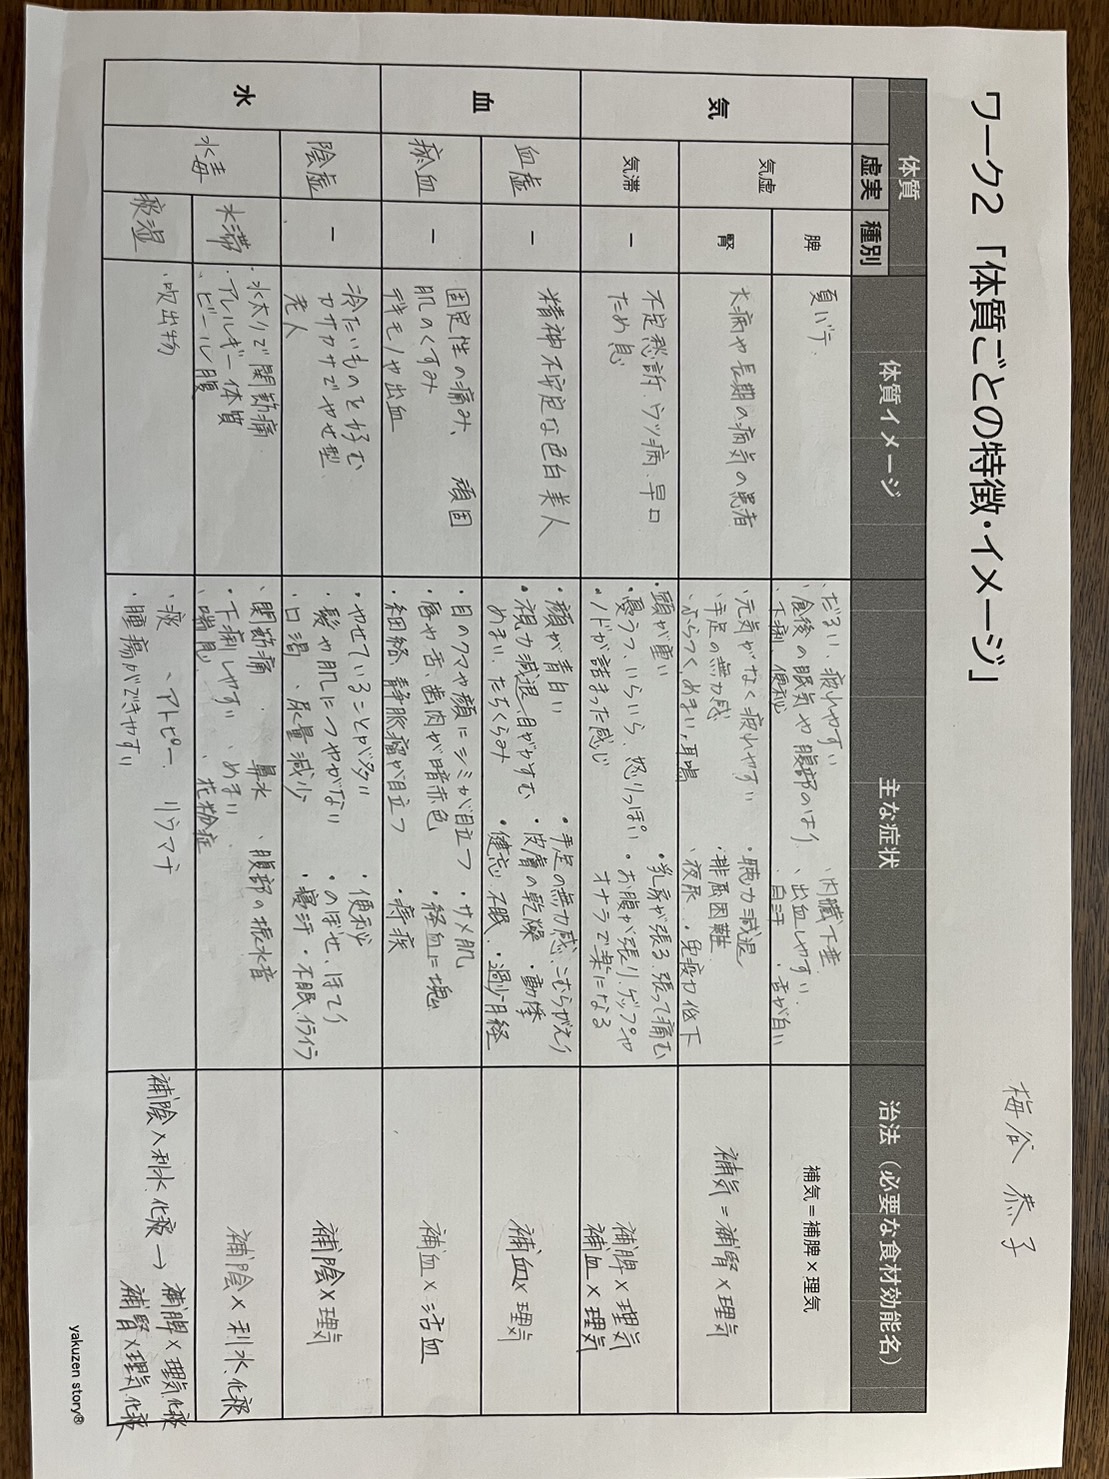 ワーク2「体質ごとの特徴・イメージ」
梅谷 恭子
体質
虚実
種別
体質イメージ
主な症状
治法（必要な食材効能名）
気
気虚
脾
夏バテ
・だるい、疲れやすい
・内臓下垂
・食後の眠気や腹部のはり
・出血しやすい
・下痢、便秘
・自汗
・舌が白い
補気＝補脾×理気
腎
大病や長期の病気の患者
・元気がなく疲れやすい
・聴力減退
・手足の無力感
・排尿困難
・ふらつく、めまい、耳鳴
・夜尿
・免疫力低下
補気＝補腎×理気
気滞
ー
不定愁訴、ウツ病、早口
ため息
・頭が重い
・乳房が張る、張って痛む
・憂うつ、いらいら、怒りっぽい
・お腹が張り、ゲップや
・ノドが詰まった感じ
オナラで楽になる
補脾×理気
補血×理気
血
血虚
ー
精神不安定な色白美人
・顔が青白い
・手足の無力感、こむらがえり
・視力減退、目がかすむ
・皮膚の乾燥
・動悸
めまい、たちくらみ
・健忘、不眠
・過少月経
補血×理気
瘀血
ー
固定性の痛み、頑固
肌のくすみ
デキモノや出血
・目のクマや顔にシミが目立つ
・サメ肌
・唇や舌、歯肉が暗赤色
・経血に塊
・細絡、静脈瘤が目立つ
・痔疾
補血×活血
水
陰虚
ー
冷たいものを好む
カサカサでやせ型
老人
・やせていることが多い
・便秘
・髪や肌につやがない
・のぼせ、ほてり
・口渇
・尿量減少
・寝汗
・不眠、イライラ
補陰×理気
水毒
水滞
・水太りで関節痛
・アレルギー体質
・ビール腹
・関節痛
・鼻水
・腹部の振水音
・下痢しやすい
・めまい
・喘息
・花粉症
補陰×利水、化痰
痰湿
・吹出物
・痰
・アトピー
リウマチ
・腫瘍ができやすい
補陰×利水、化痰→
補脾×理気、化痰
補腎×理気、化痰
yakuzen story®